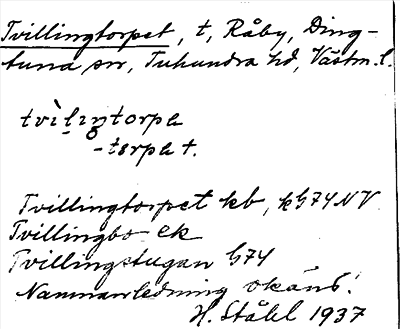 Tvillingtorpet, t, Råby, Ding-
tuna sn, Tuhundra hd, Västm. l.
tvìliŋtorpə
-torpət.
Tvillingtorpet kb, kG74NV
Tvillingbo ek
Tvillingstugan G74
Namnanledning okänd.
H. Ståhl 1937